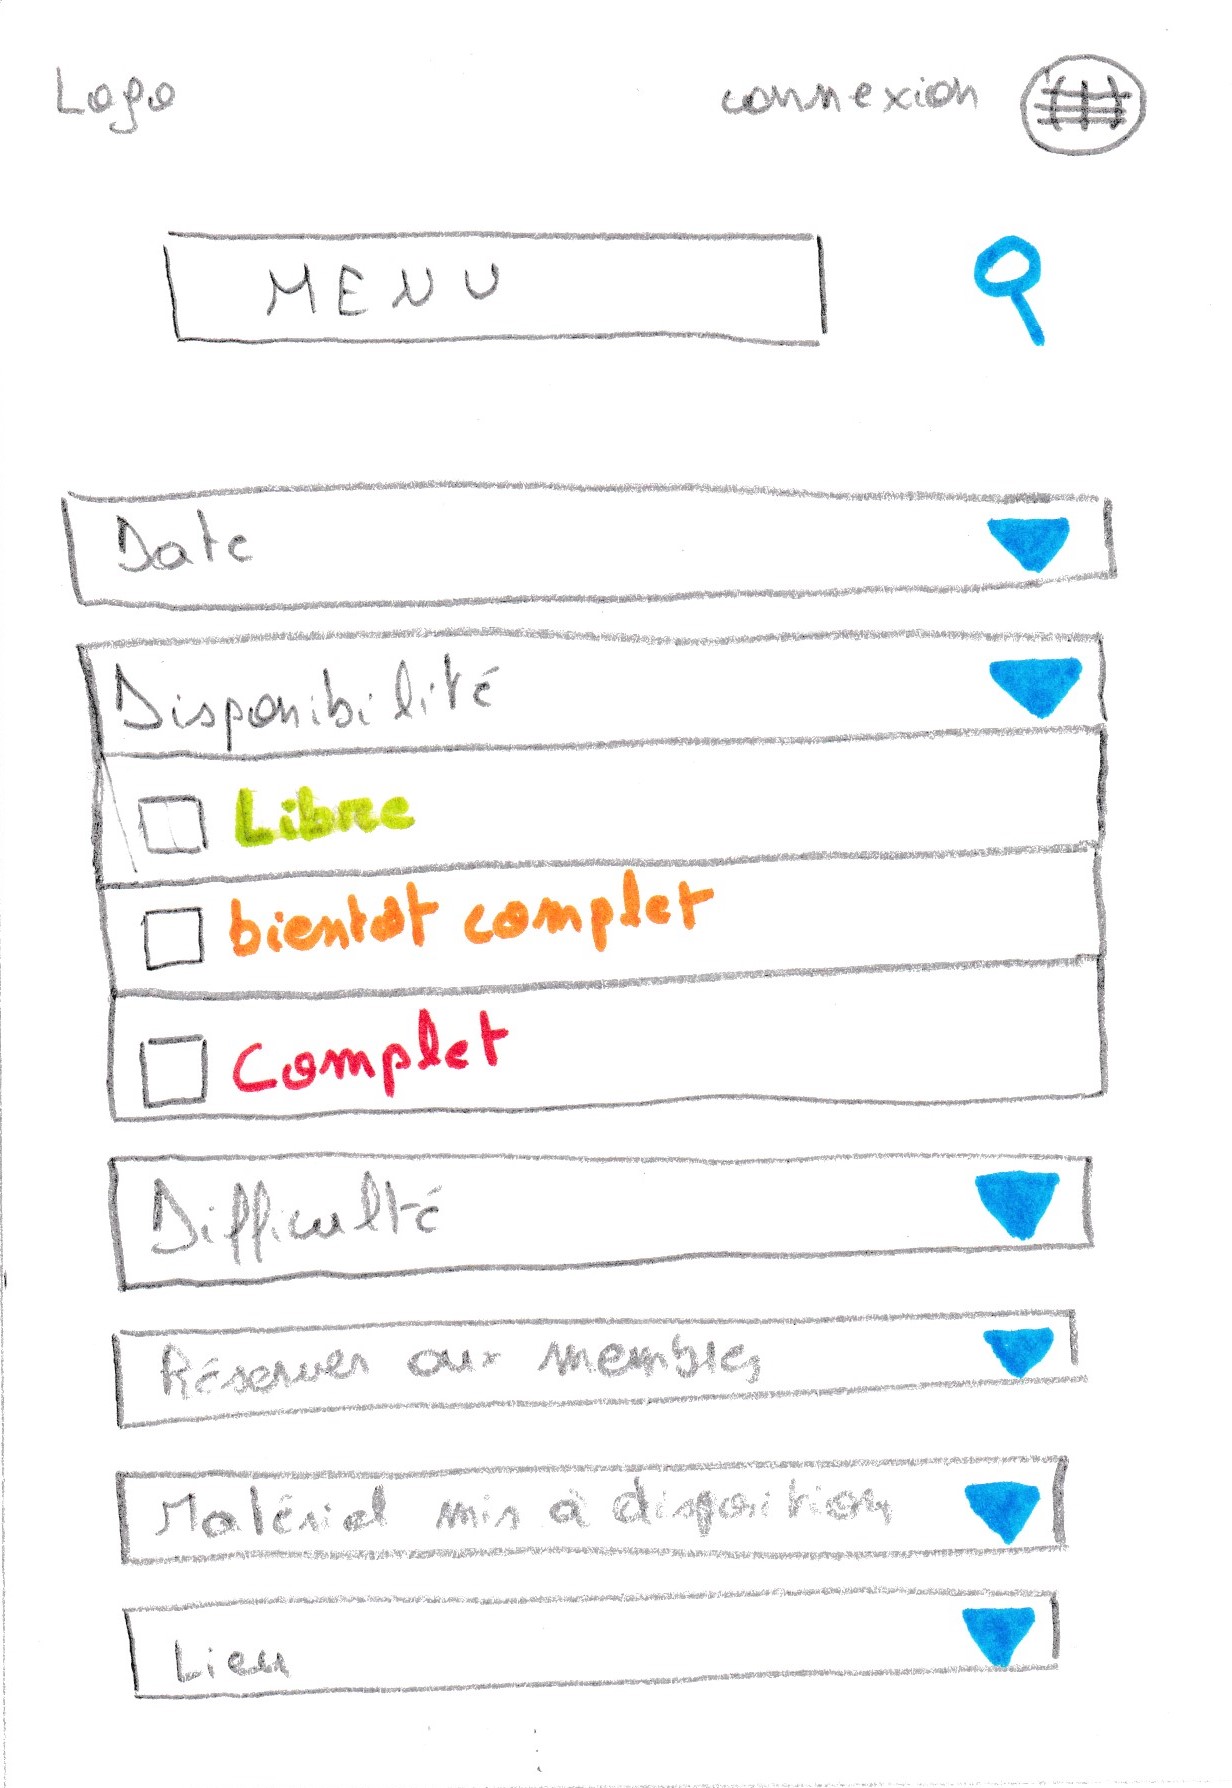 Logo connexion
MENU
Date
Disponibilité
Libre
bientôt complet
Complet
Difficulté
Réserver aux membres
Matériel mis à disposition
Lieu